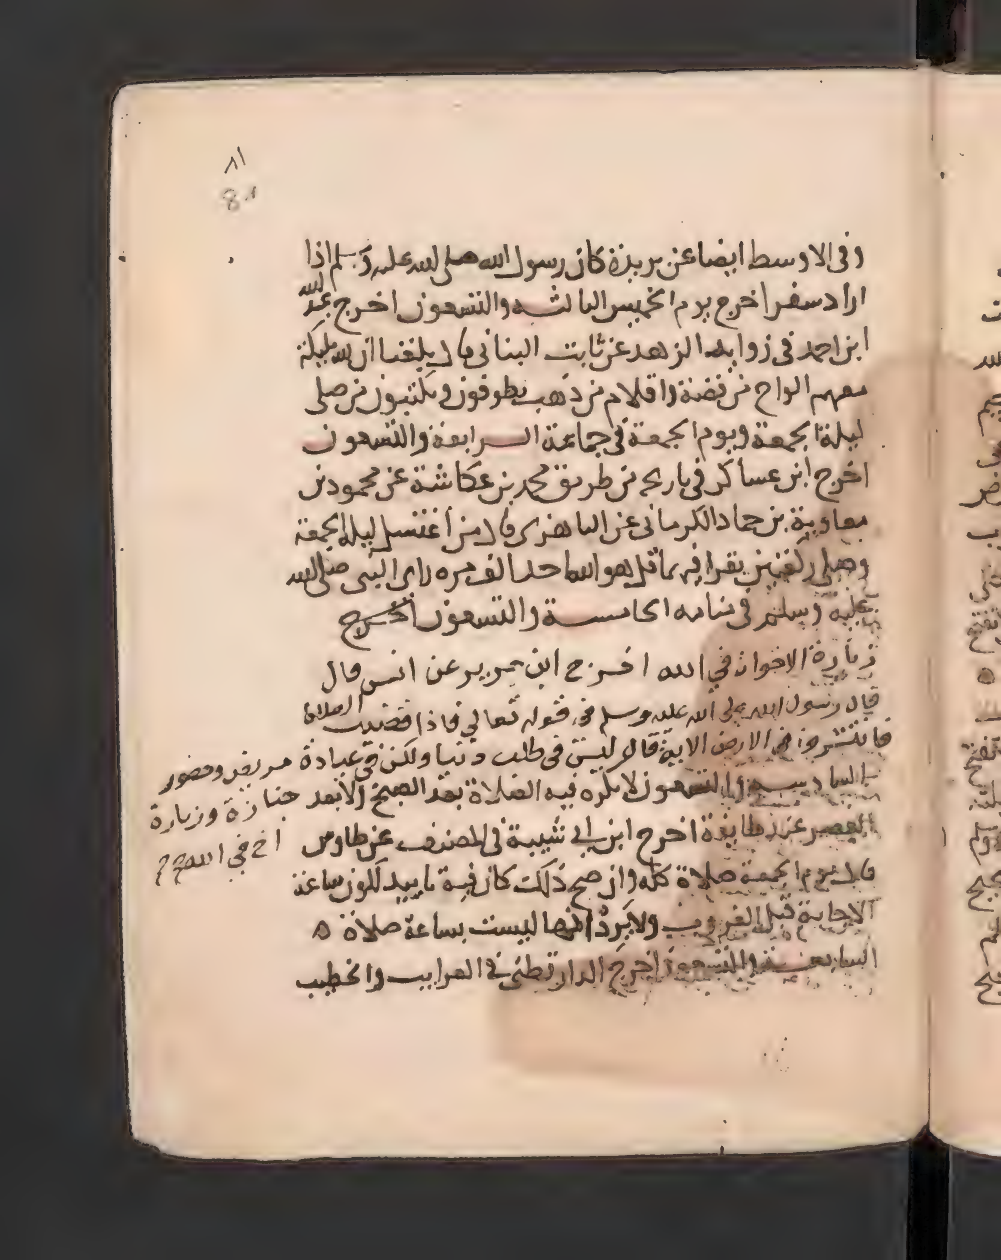 ٨١
81
وفى الاوسط ايضا عن بريدة كان رسول الله صلى لله عليه وسلم اذا
اراد سفرا خرج يوم الخميس الثالثه والتسعون اخرج عبد الله
ابن احمد فى زوايد الزهد عن ثابت البنانى قال بلغنا ان لله مليكة
معهم الواح من فضة واقلام من ذهب يطوفون ويكتبون من صلى
ليلة الجمعة ويوم الجمعة فى جماعة الرابعة والتسعون
اخرج ابن عساكر فى تاريخه من طريق محمد بن عكاشة عن محمود بن
معاوية بن حماد الكرمانى عن الزهرى قال من اغتسل ليلة الجمعة
وصلى ركعتين يقرا فيهما قل هو الله احد الف مره راى النبى صلى لله
عليه وسلم فى منامه الخامسة والتسعون
زيارة الاخوان في الله اخرج ابن جرير عن انس قال
قال رسول الله صلى الله عليه وسلم في قوله تعالي فاذا قضيت الصلاة
فانتشروا في الارض الاية قال ليس في طلب دنيا ولكن في عيادة مريض وحضور
جنازة وزيارة
اخ في الله
السادسة والتسعون لا تكره فيه الصلاة بعد الصبح ولا بعد
العصر عند طايفة اخرج ابن ابي شيبة فى المصنف عن طاوس
قال يوم الجمعة صلاة كله وان صح ذلك كان فية تاييد لكون ساعة
الاجابة قبل الغروب ولا يرد انها ليست بساعة صلاة ه
السابعة والتسعون اخرج الدارقطنى فى الغرايب والخطيب